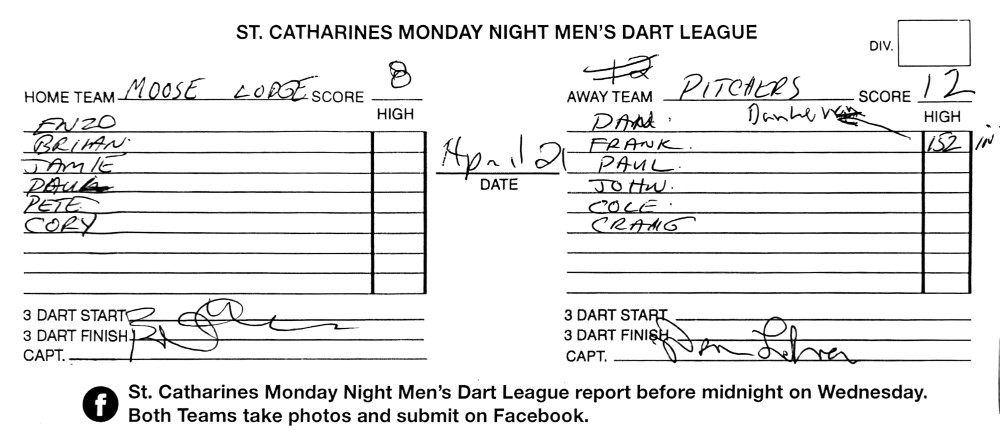 ST. CATHARINES MONDAY NIGHT MEN'S DART LEAGUE
DIV.
HOME TEAM MOOSE LODGE SCORE 8
HIGH
ENZO
BRIAN
JAMIE
PAUL
PETE
CORY
April 21
DATE
#2
AWAY TEAM PITCHERS SCORE 12
HIGH
DAN.
FRANK. 152 in
PAUL.
JOHN.
COLE.
CRAIG
3 DART START
3 DART FINISH
CAPT.
3 DART START
3 DART FINISH
CAPT. Dan
St. Catharines Monday Night Men's Dart League report before midnight on Wednesday.
Both Teams take photos and submit on Facebook.